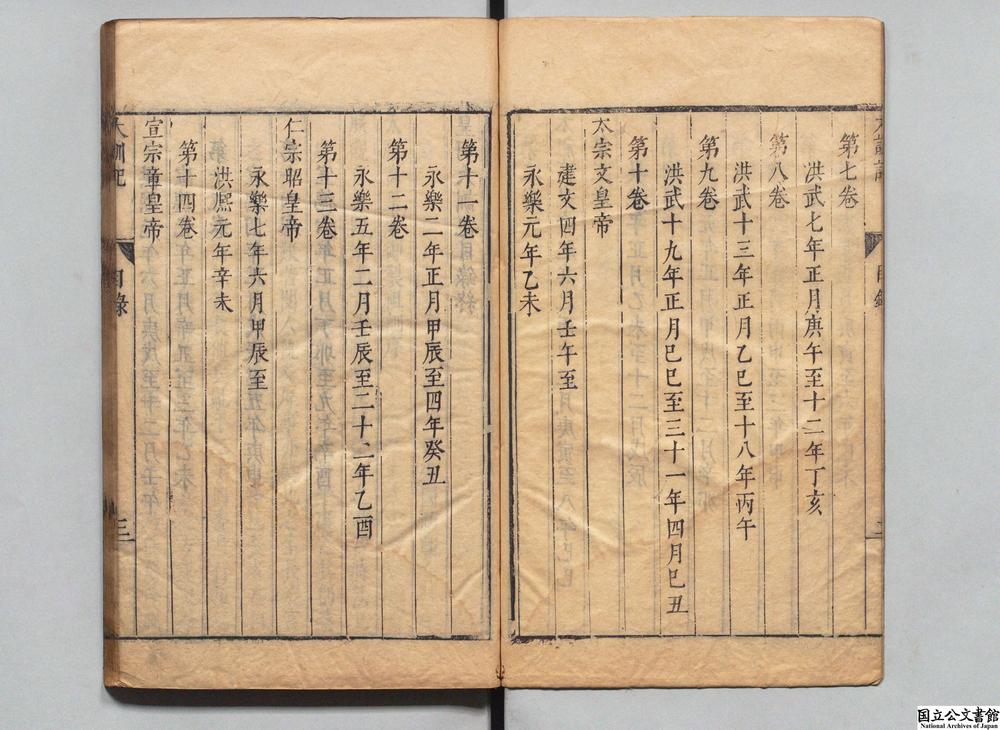 第七卷
洪武七年正月庚午至十二年丁亥
第八卷
洪武十三年正月乙巳至十八年丙午
第九卷
洪武十九年正月巳巳至三十一年四月巳丑
第十卷
太宗文皇帝
建文四年六月壬午至
永樂元年乙未
第十一卷
永樂二年正月甲辰至四年癸丑
第十二卷
永樂五年二月壬辰至二十二年乙酉
第十三卷
仁宗昭皇帝
永樂七年六月甲辰至
洪熈元年辛未
第十四卷
宣宗章皇帝
大訓記
目錄
三
国立公文書館
National Archives of Japan